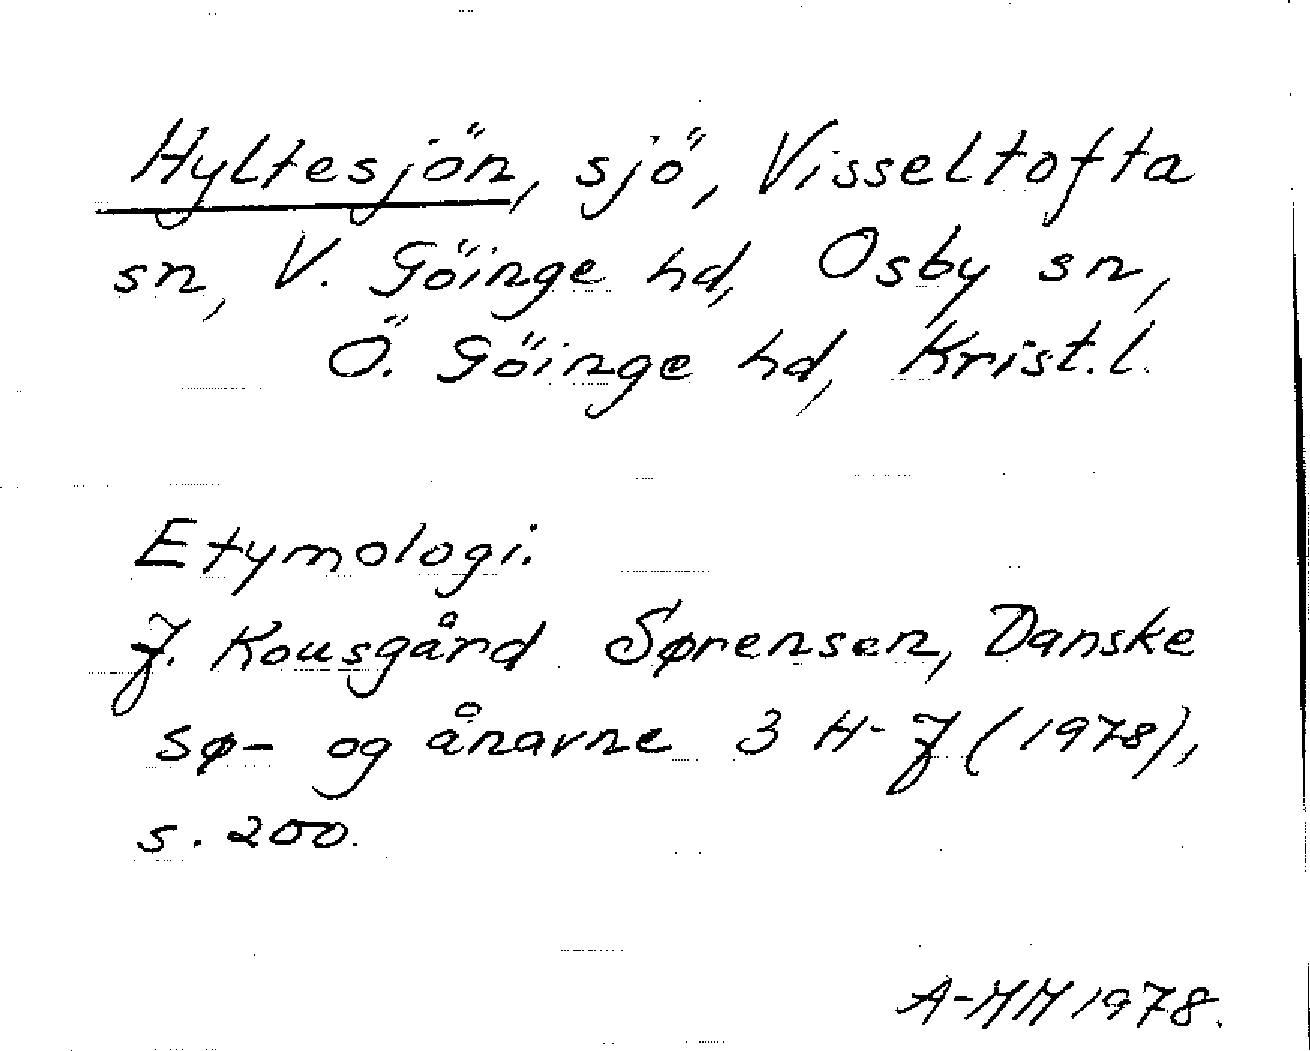 Hyltesjön, sjö, Visseltofta
sn, V. Göinge hd, Osby sn,
Ö. Göinge hd, Krist.l.
Etymologi.
J. Kousgård Sørensen, Danske
sø- og ånavne 3 H-J (1978),
s. 200.
A-MM 1978.